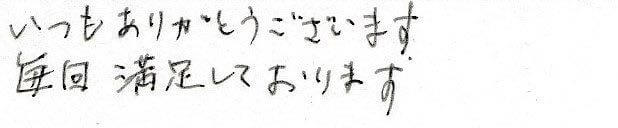 いつもありがとうございます
毎回満足しております